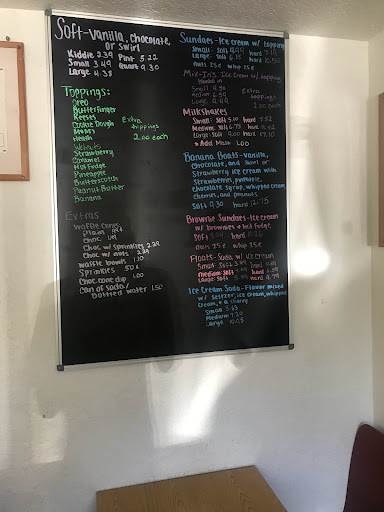 Soft-vanilla, chocolate,
or swirl
Kiddie 2.39 Pint 5.22
Small 3.49 Quart 9.30
Large 4.38
Toppings:
Oreo
Butterfinger
Reeses
Cookie Dough
M&M's
Heath
Extra
toppings
2.00 each
Walnuts
Strawberry
Caramel
Hot Fudge
Pineapple
Butterscotch
Peanut Butter
Banana
Extras
waffle cones:
Plain
Choc
Choc w/ sprinkles 2.29
Choc w/ nuts
waffle bowls 1.30
Sprinkles 50¢
Choc cone dip 1.00
Can of soda/
bottled water 1.50
Sundaes-Ice cream w/ topping
Small- soft
Large- soft
nuts 25¢ whip 25¢
Mix-Ins- Ice cream w/ topping
blended in
Small
Medium
Large
Extra
toppings
2.00 each
Milkshakes
Small- soft hard
Medium- soft hard
Large- soft hard
* Add Malt 1.00
Banana Boats-vanilla,
chocolate, and swirl or
Strawberry ice cream with
strawberries, pineapple,
chocolate syrup, whipped cream
cherries, and peanuts
soft 9.30 hard 12.75
Brownie Sundaes-Ice cream
w/ brownies + hot fudge
soft hard
nuts 25¢ whip 25¢
Floats-Soda w/ ice cream
Small- soft hard
medium soft hard
Large- soft hard
Ice Cream Soda-Flavor mixed
w/ seltzer, ice cream, whipped
cream, + a cherry
Small
Medium
Large